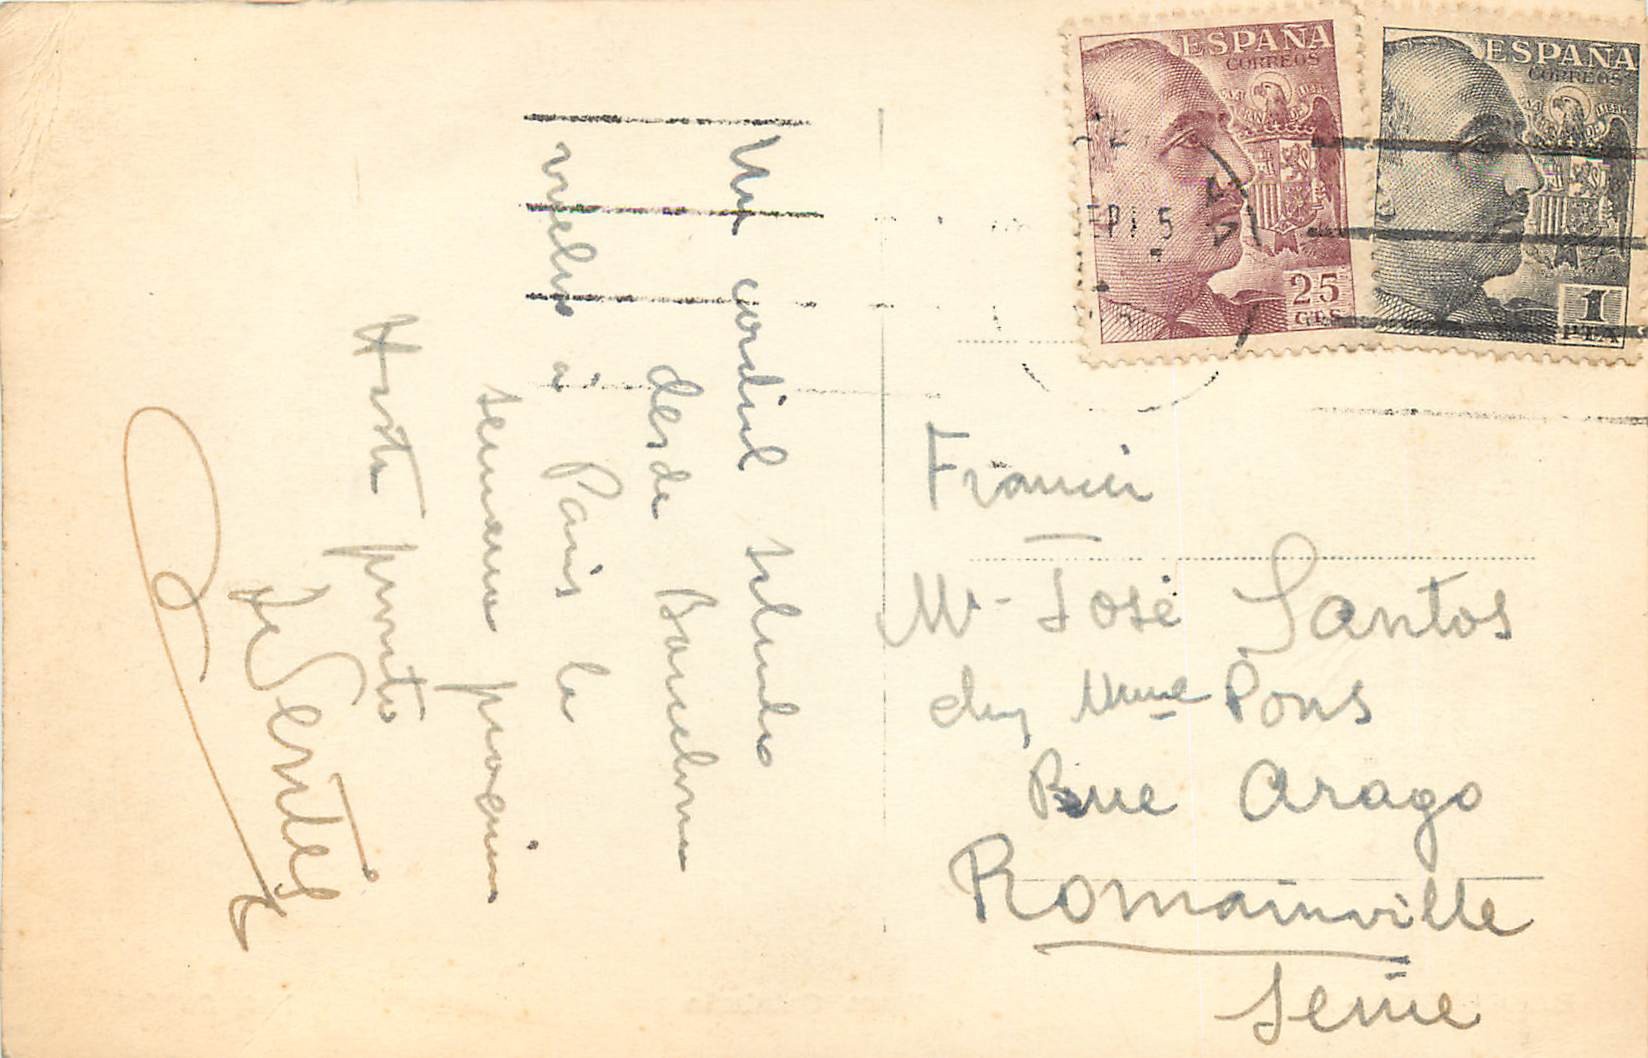 Un cordial saludo
desde Barcelona
vuelvo a Paris la
semana proxima
Hasta pronto
ESPAÑA
CORREOS
25
CTS
ESPAÑA
CORREOS
1
PTA
Francia
Mr José Santos
chez Mme Pons
Rue Arago
Romainville
Seine